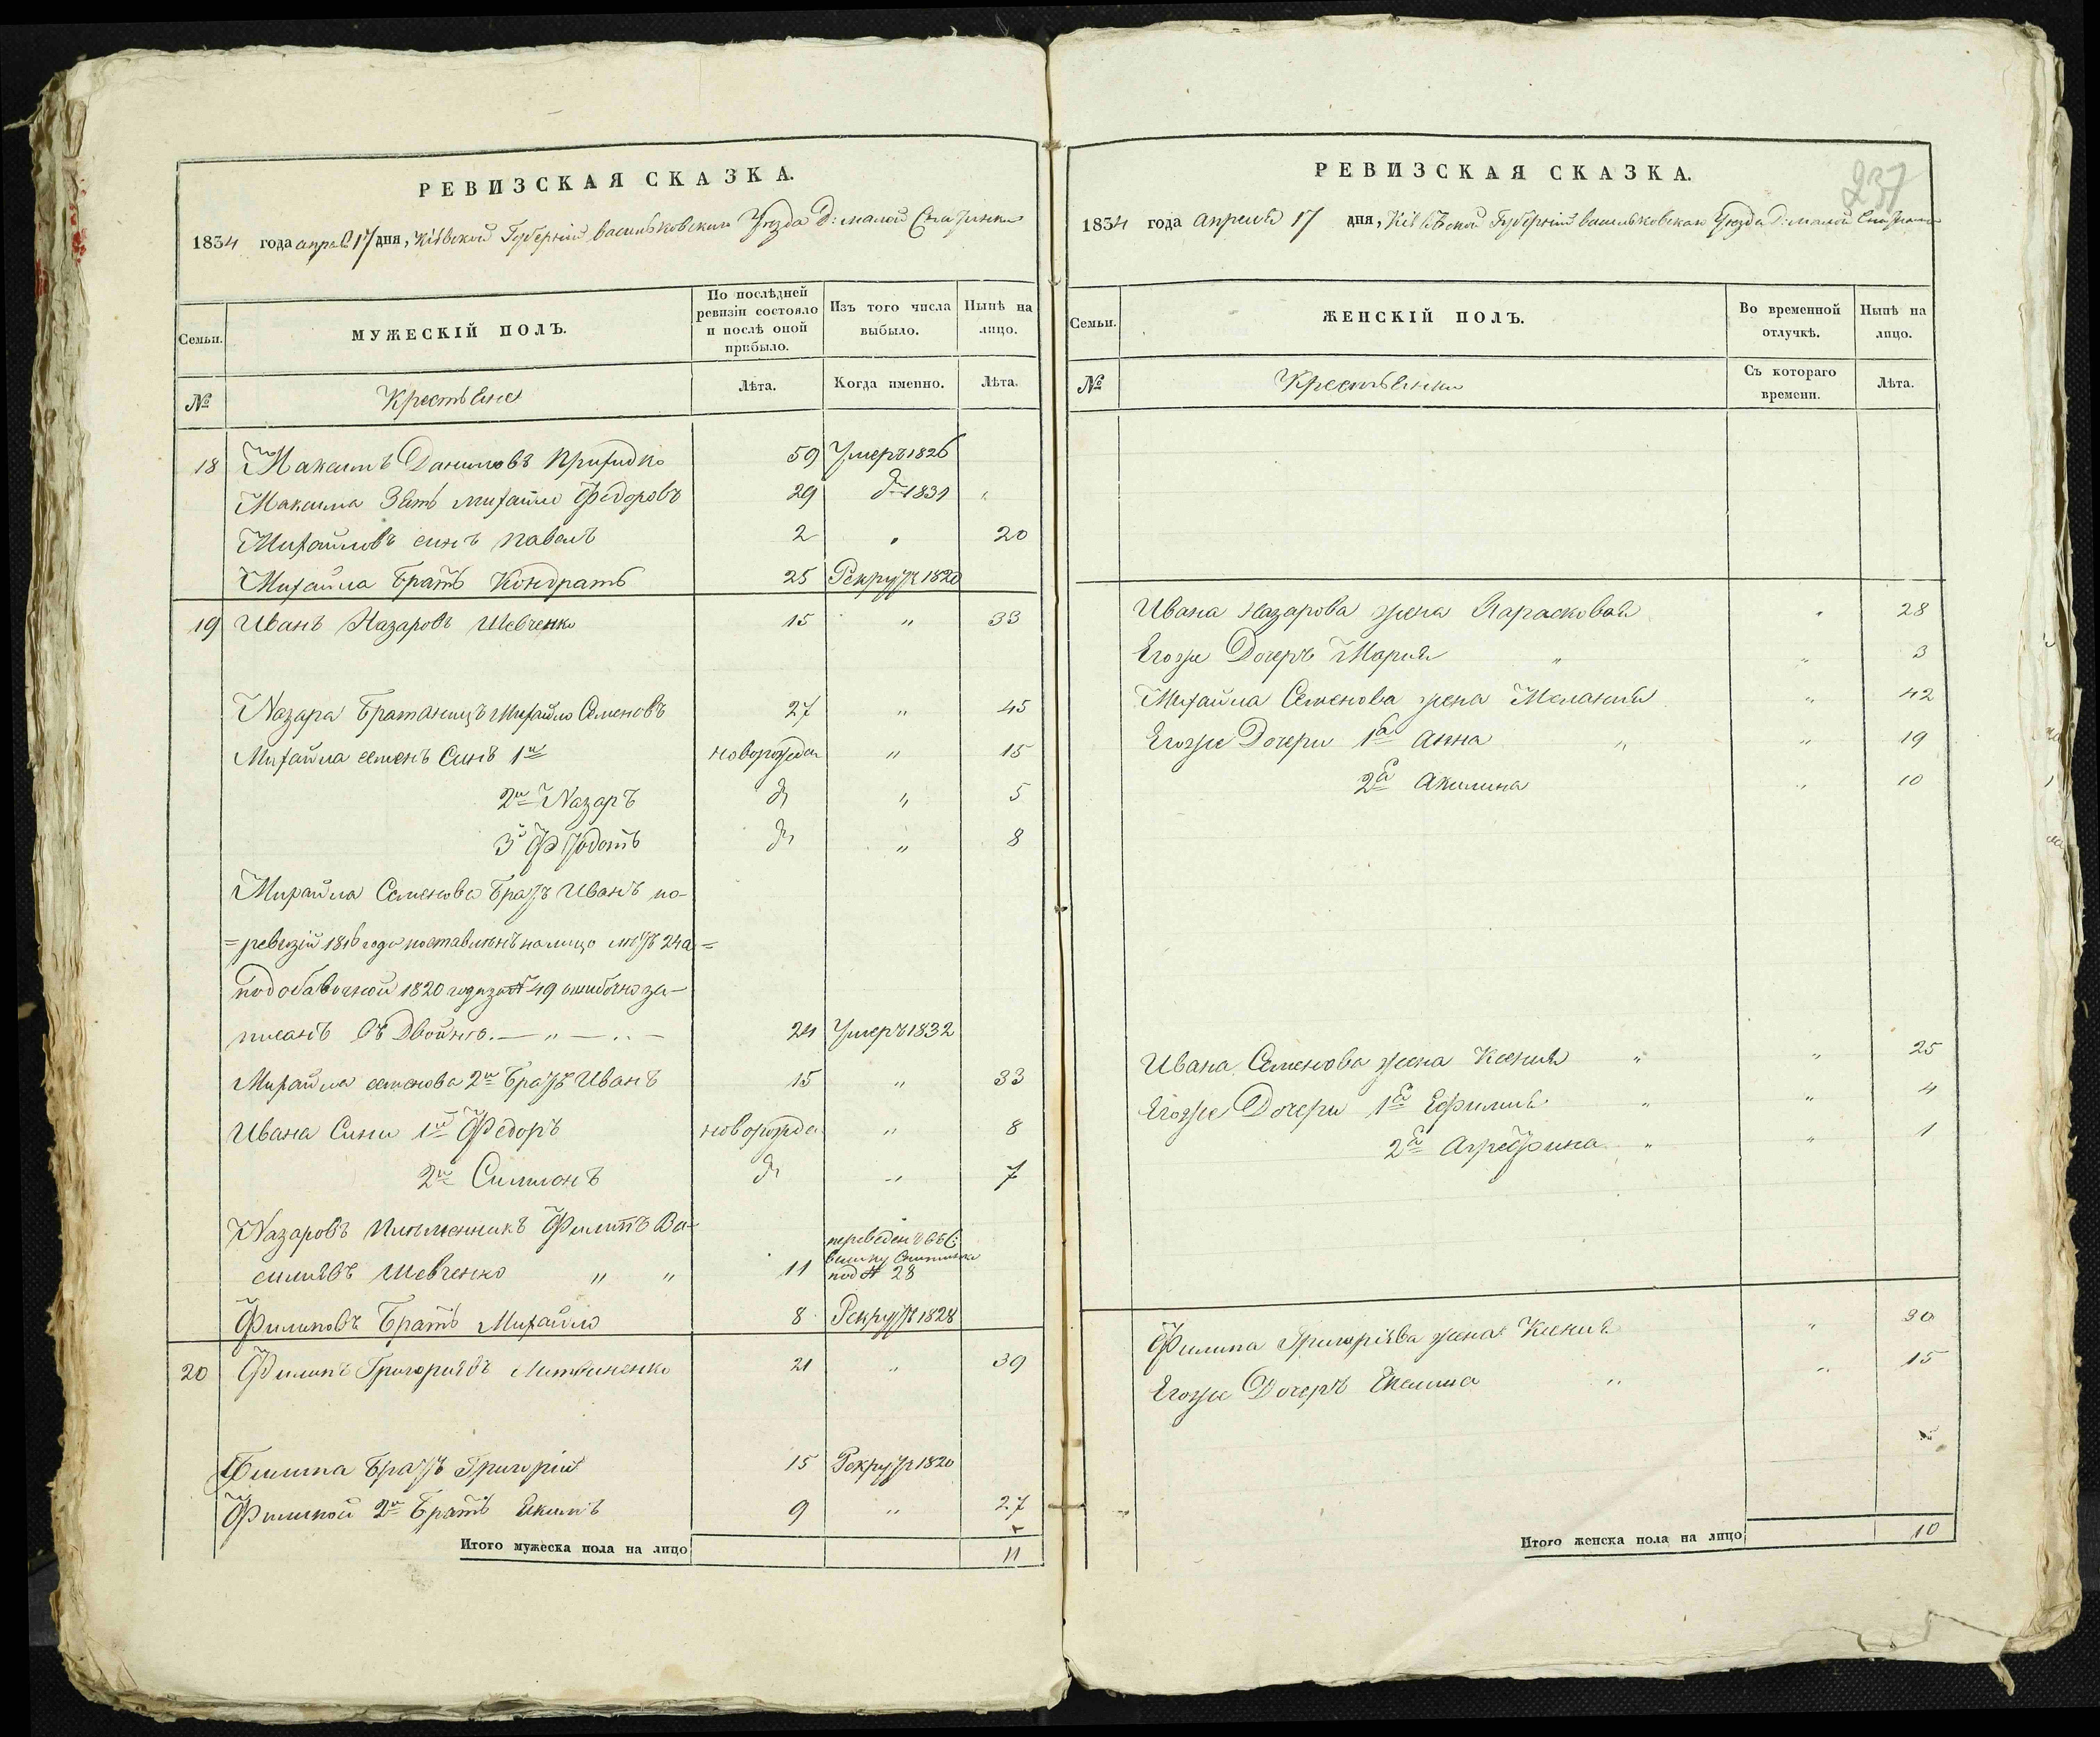 РЕВИЗСКАЯ СКАЗКА.
1834 года апреля 17 дня, Кіевской Губерніи васильковскаго Уезда Д: малой
Семьи.
МУЖЕСКІЙ ПОЛЪ.
По послѣдней ревизіи состояло и послѣ оной прибыло.
Изъ того числа выбыло.
Нынѣ на лицо.
№
Крестьяне
Лѣта.
Когда именно.
Лѣта.
18 Максимъ Даниловъ 59 Умеръ 1826
Максима Зять михайло Федоровъ 29 д 1831
Михайловъ синъ павелъ 2 " 20
Михайла братъ Кондратъ 25 Рекрутъ 1820
19 Иванъ Назаровъ Шевченко 15 " 33
Назара братаницъ Михайло Семеновъ 27 " 45
Михайла семенъ Синъ 1й новорожден " 15
2й Назаръ д " 5
3й Федотъ д " 8
Михайла Семенова братъ Иванъ по-
=ревизіи 1816 года поставленъ налицо летъ 24 а=
подобавочной 1820 года за № 49 ошибочно за-
писанъ въ двойне. — " — 24 Умеръ 1832
Михайла семенова 2й братъ Иванъ 15 " 33
Ивана Сини 1й Федоръ новорожде " 8
2й Симионъ д " 7
Назаровъ племенникъ Филипъ Ва-
силиевъ Шевченко " " 11 переведенъ въ С: под № 28
Филиповъ братъ Михайло 8 Рекрутъ 1828
20 Филипъ Григориевъ Литвиненко 21 " 39
Филипа братъ Григорій 15 Рекрутъ 1820
2й братъ Якимъ 9 " 27
Итого мужеска пола на лицо 11
237
РЕВИЗСКАЯ СКАЗКА.
1834 года апреля 17 дня, Кіевской Губерніи васильковскаго Уезда Д: малой
Семьи.
ЖЕНСКІЙ ПОЛЪ.
Во временной отлучкѣ.
Нынѣ на лицо.
№
Крестьянки
Съ котораго времени.
Лѣта.
Ивана Назарова жена Парасковья " 28
Егоже Дочеръ Мария " " 3
Михайла Семенова жена Мелания " 42
Егоже Дочери 1я Анна " " 19
2я Акилина " 10
Ивана Семенова жена Ксения " " 25
Егоже Дочери 1я Ефимия " " 4
2я Агрефина " " 1
Филипа Григоріева жена Ксения " 30
Егоже Дочеръ " " 15
Итого женска пола на лицо 10